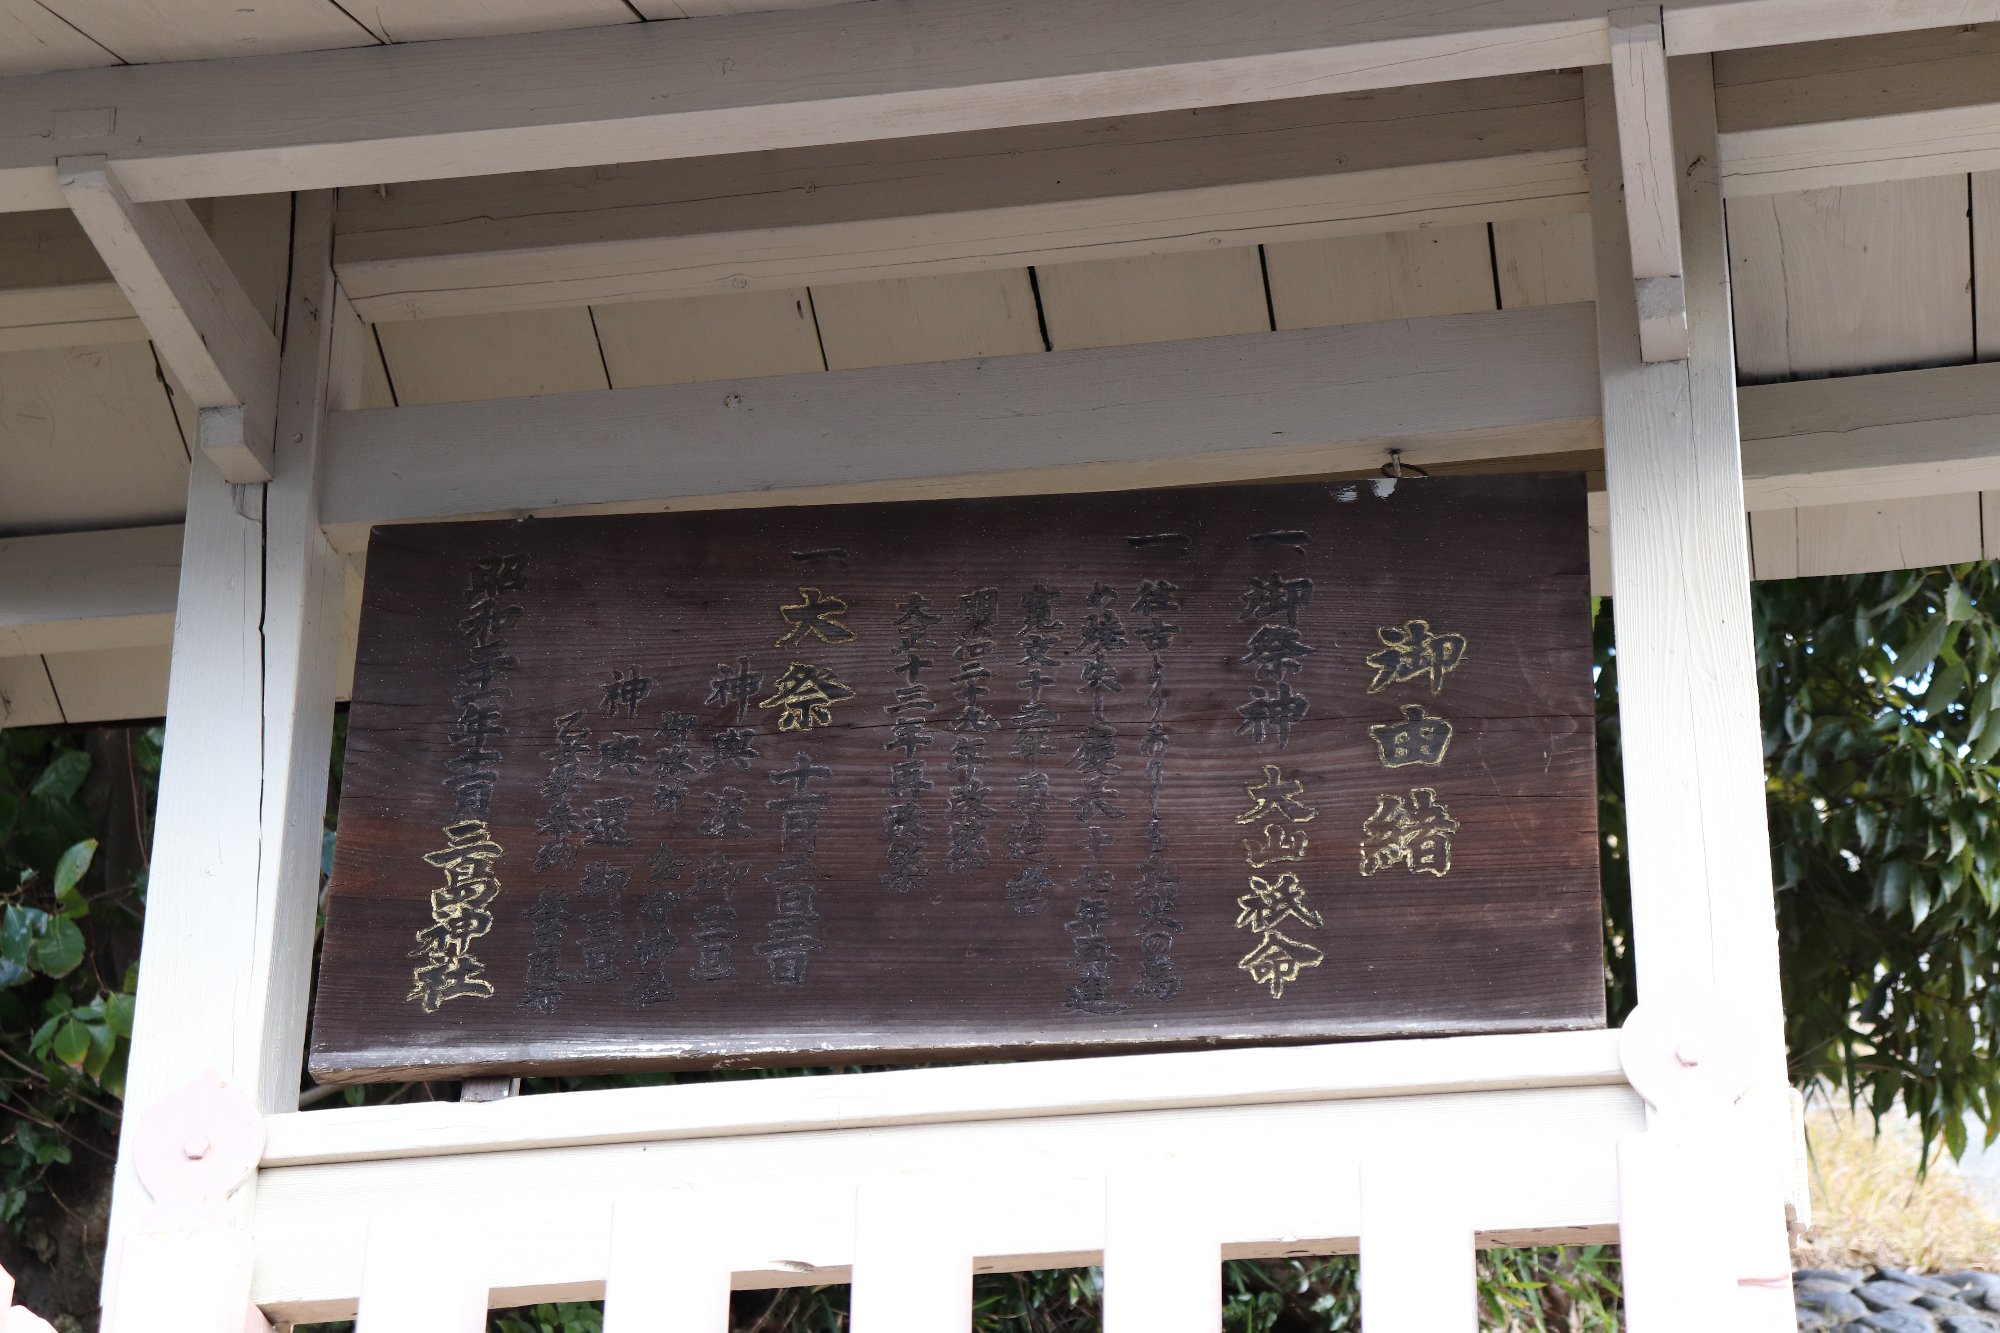 御由緒
一 御祭神 大山祇命
一 往古よりありしも兵火の為
め焼失し慶長十七年再建
寛文十二年再造営
明治二十九年改築
大正十三年再改築
一 大祭 十一月二日三日
神輿渡御 二日
御旅所 金 神社
神輿還御 三日
昭和 年 三島神社